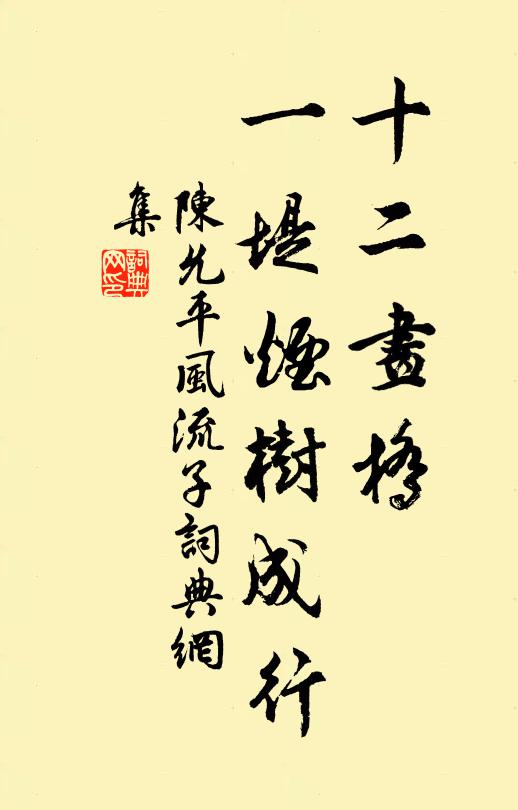 十二畫橋
一堤煙樹成行
陳允平風流子詞典網
集
詞典
网印